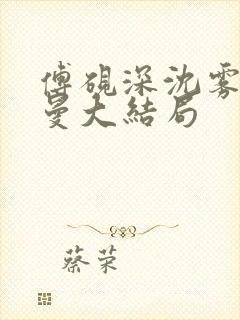 傅砚深沈雾
曼大结局
蔡荣